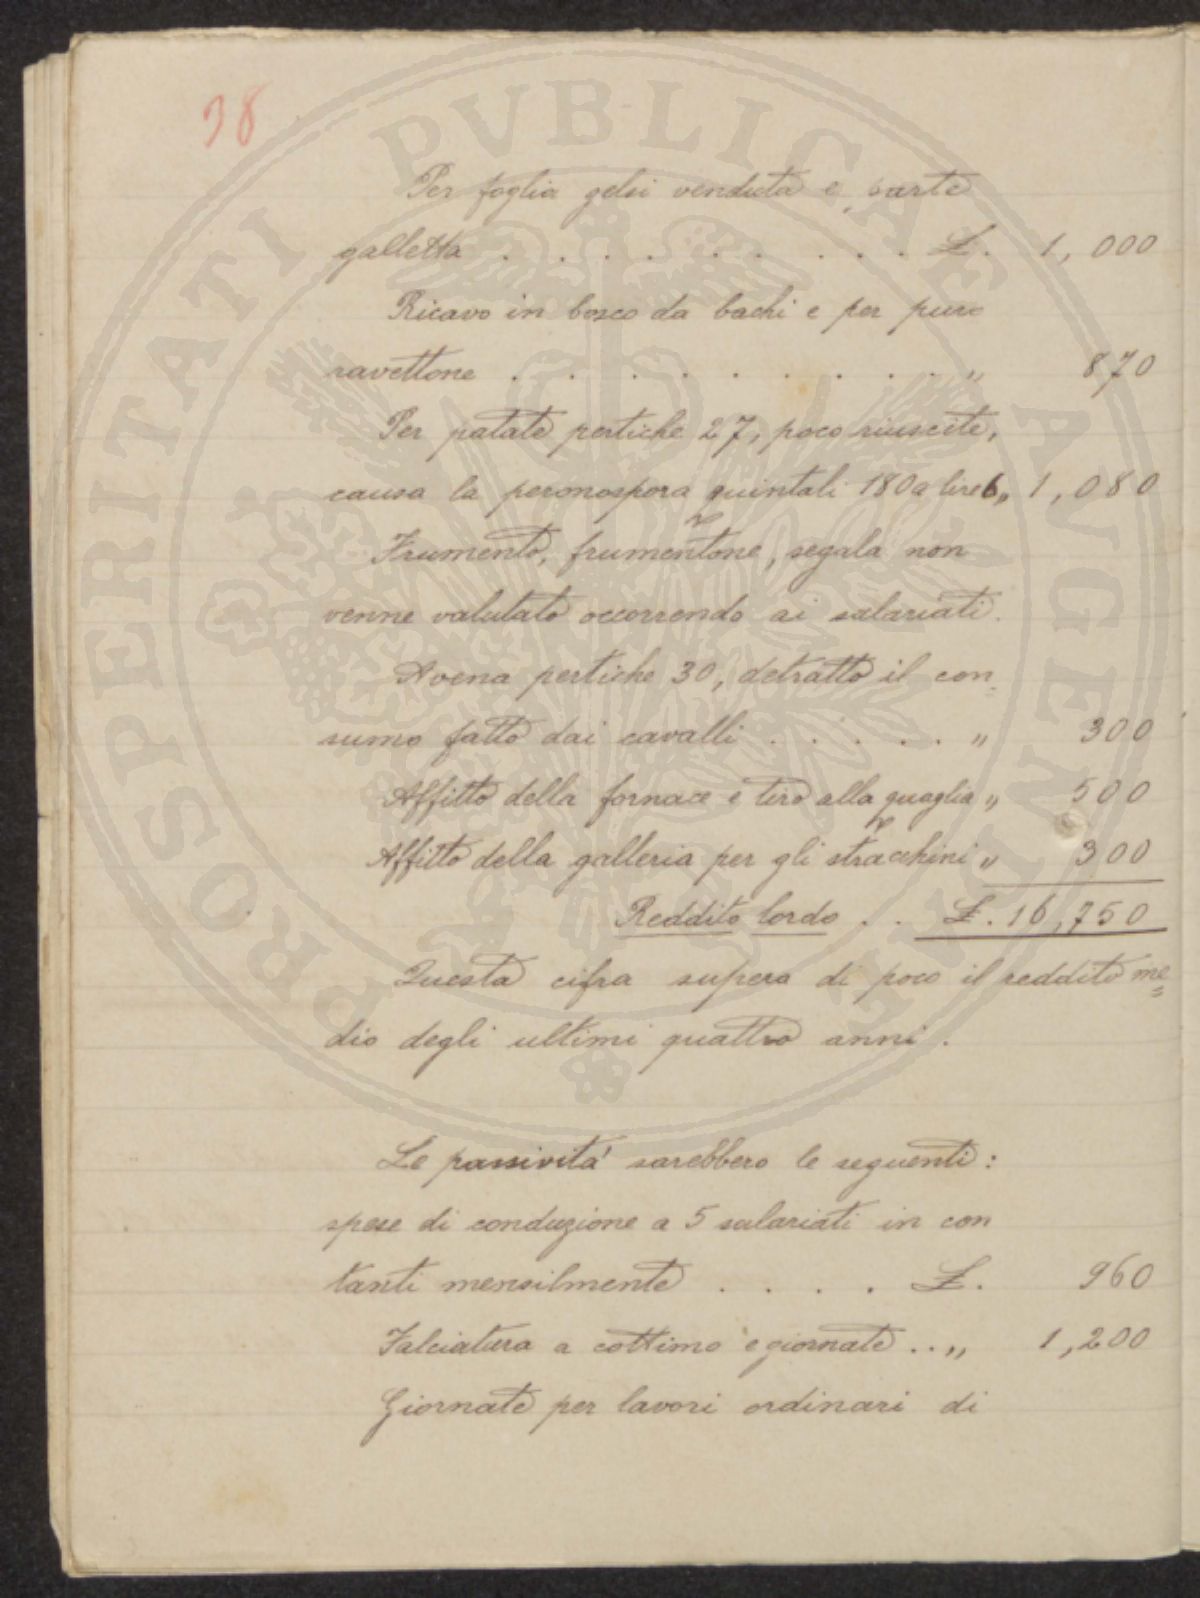 38
Per foglia gelsi venduta e parte
galletta . . . . . . . . . £. 1,000
Ricavo in bosco da bachi e per puro
ravettone . . . . . . . . . " 870
Per patate pertiche 27, poco riuscite,
causa la peronospora quintali 180 a lire 6 " 1,080
Frumento, frumentone, segala non
venne valutato occorrendo ai salariati.
Avena pertiche 30, detratto il con-
sumo fatto dai cavalli . . . . . " 300
Affitto della fornace e tiro alla quaglia " 500
Affitto della galleria per gli stracchini " 300
Reddito lordo . . £. 16,750
Questa cifra supera di poco il reddito me=
dio degli ultimi quattro anni.
Le passività sarebbero le seguenti:
spese di conduzione a 5 salariati in con
tanti mensilmente . . . . £. 960
Falciatura a cottimo e giornate .. " 1,200
Giornate per lavori ordinari di
PROSPERITATI PVBLICAE AVGENDAE